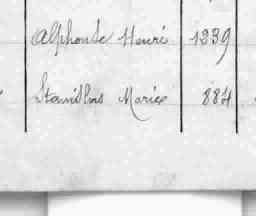 Alphonse Henri 1239
Stanislas Marie 884